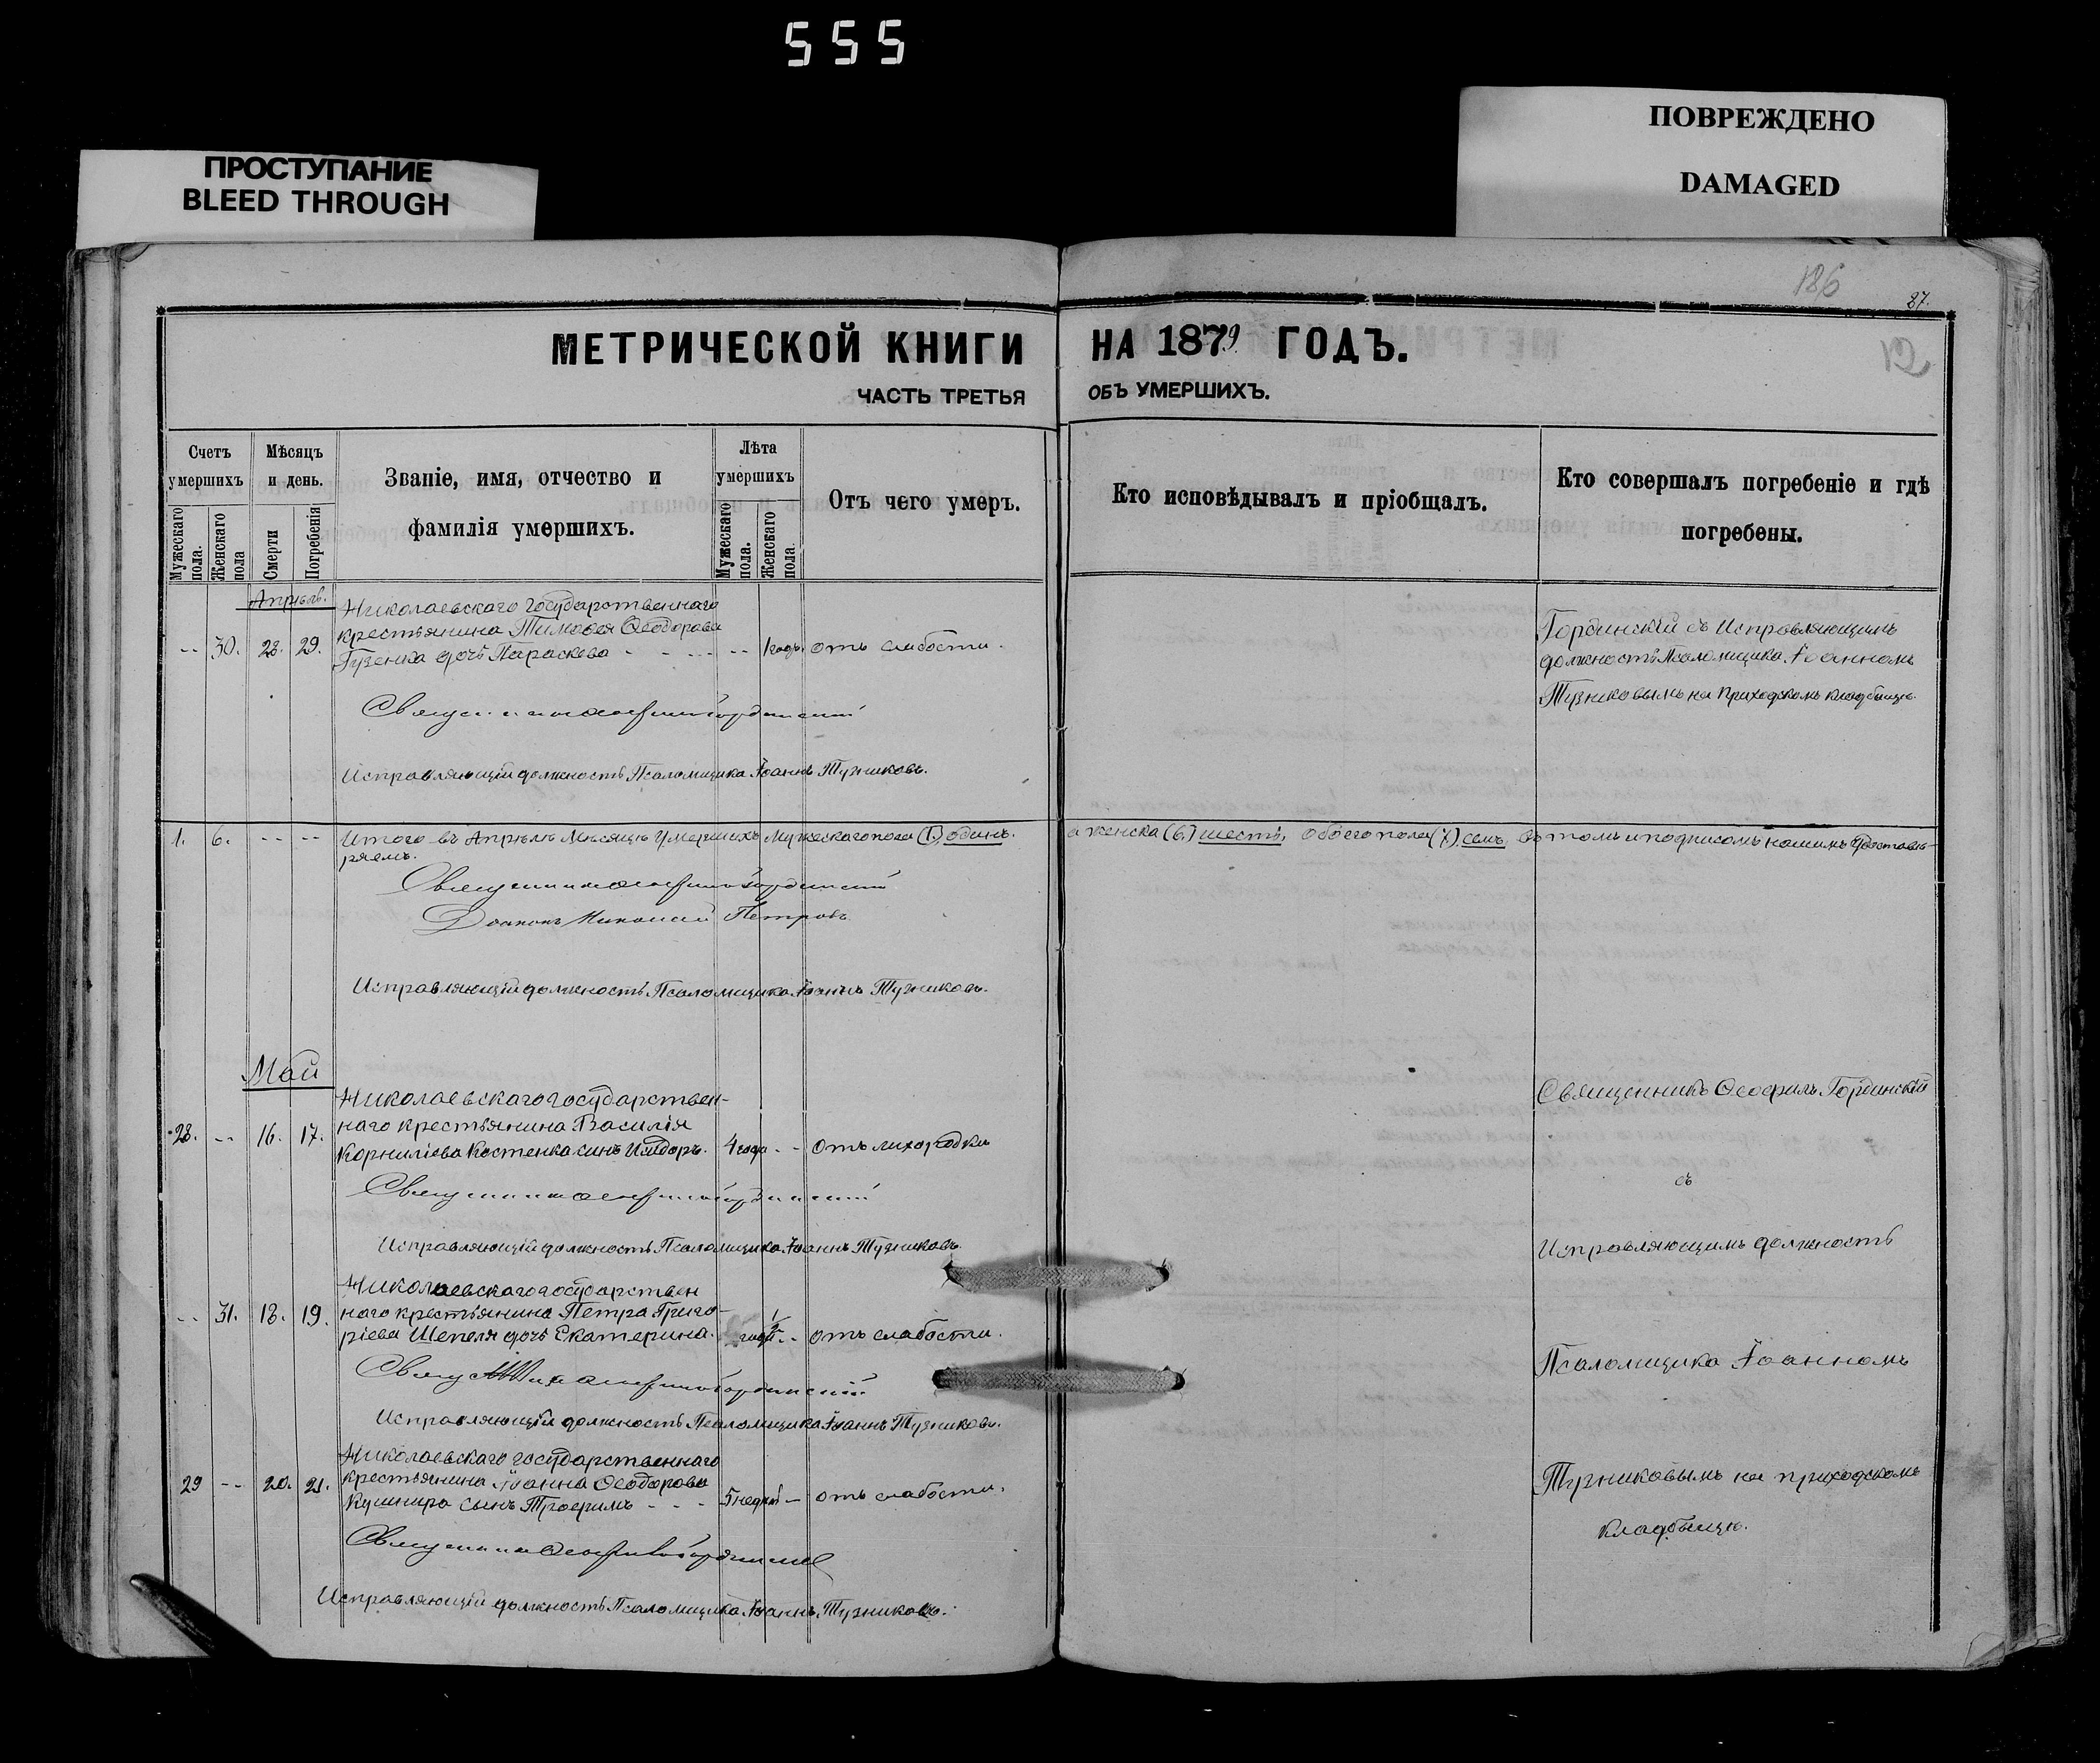 555
ПОВРЕЖДЕНО
DAMAGED
ПРОСТУПАНИЕ
BLEED THROUGH
186
87.
12
МЕТРИЧЕСКОЙ КНИГИ НА 1879 ГОДЪ.
ЧАСТЬ ТРЕТЬЯ ОБЪ УМЕРШИХЪ.
Счетъ умершихъ
Мужескаго пола.
Женскаго пола
Мѣсяцъ и день.
Смерти
Погребенія
Званіе, имя, отчество и фамилія умершихъ.
Лѣта умершихъ
Мужескаго пола.
Женскаго пола.
Отъ чего умеръ.
Кто исповѣдывалъ и пріобщалъ.
Кто совершалъ погребеніе и гдѣ погребены.
Апрѣль.
Николаевскаго государственнаго
крестьянина Тимоѳея Ѳеодорова
-- 30. 28. 29. дочь Параскева -- 1 годъ. отъ слабости.
Гординскій съ Исправляющимъ
должность Псаломщика Іоанномъ
Тузниковымъ на приходскомъ кладбищѣ.
Священникъ Ѳеофилъ Гординскій
Исправляющій должность Псаломщика Іоаннъ Тузниковъ.
1. 6. -- -- Итого въ Апрѣлѣ мѣсяцѣ умершихъ мужескаго пола (1.) одинъ. а женска (6.) шесть, обоего пола (7.) семь, въ томъ и подписомъ нашимъ удостовѣ-
ряемъ.
Священникъ Ѳеофилъ Гординскій
Діаконъ Николай Петровъ
Исправляющій должность Псаломщика Іоаннъ Тузниковъ.
Май
Николаевскаго государствен-
наго крестьянина Василія
28. -- 16. 17. Корниліева Костенка сынъ Исидоръ. 4 года -- отъ лихорадки
Священникъ Ѳеофилъ Гординскій
съ
Исправляющимъ должность
Псаломщика Іоанномъ
Тузниковымъ на приходскомъ
кладбищѣ.
Священникъ Ѳеофилъ Гординскій
Исправляющій должность Псаломщика Іоаннъ Тузниковъ.
Николаевскаго государствен
наго крестьянина Петра Григо-
-- 31. 18. 19. ріева Шепеля дочь Екатерина. отъ слабости.
Священникъ Ѳеофилъ Гординскій
Исправляющій должность Псаломщика Іоаннъ Тузниковъ.
Николаевскаго государственнаго
крестьянина Іоанна Ѳеодорова
29 -- 20. 21. Кушнира сынъ Трофимъ -- 5 недѣль -- отъ слабости.
Священникъ Ѳеофилъ Гординскій
Исправляющій должность Псаломщика Іоаннъ Тузниковъ.